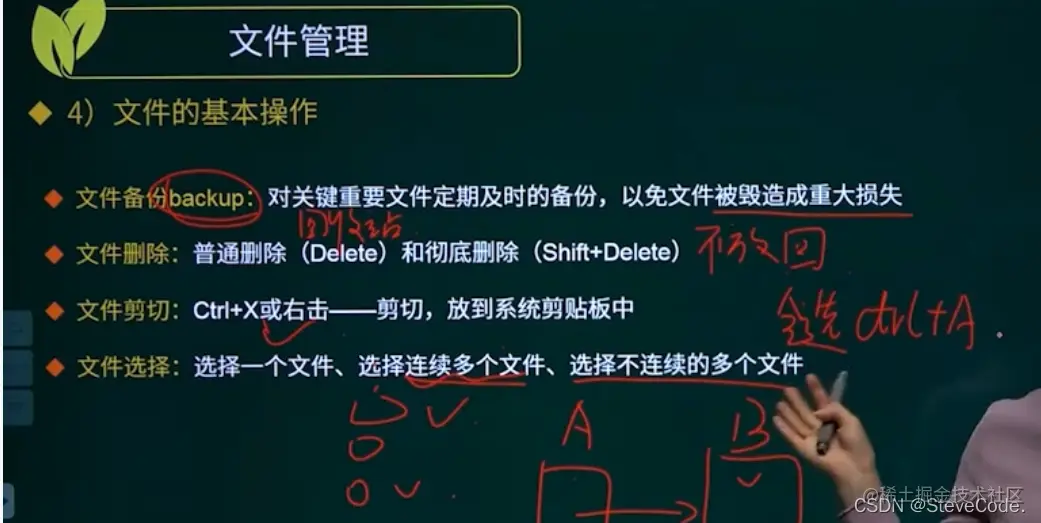 文件管理
4）文件的基本操作
文件备份backup：对关键重要文件定期及时的备份，以免文件被毁造成重大损失
回收站
文件删除：普通删除（Delete）和彻底删除（Shift+Delete）
不放回
文件剪切：Ctrl+X或右击——剪切，放到系统剪贴板中
全选 ctrl+A
文件选择：选择一个文件、选择连续多个文件、选择不连续的多个文件
A B
@稀土掘金技术社区
CSDN @SteveCode.